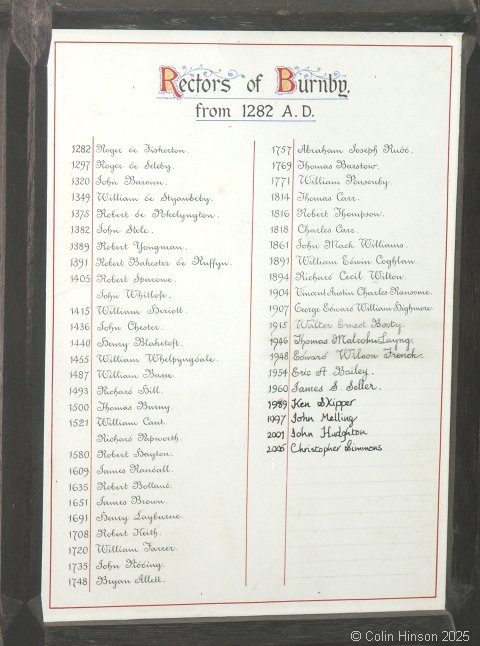 Rectors of Burnby,
from 1282 A.D.
1282 Roger de Fisherton.
1297 Roger de Seleby.
1320 John Baroun.
1349 William de Styandeby.
1375 Robert de Pokelyngton.
1382 John Stele.
1389 Robert Yongman.
1391 Robert Bakester de Ruffyn.
1405 Robert Sparowe.
John Whitlofe.
1415 William Heriott.
1436 John Chester.
1440 Henry Blaketoft.
1455 William Whelpyngdale.
1487 William Basse.
1493 Richard Hill.
1500 Thomas Burny.
1521 William Cant.
Richard Papworth.
1580 Robert Hayton.
1609 James Randall.
1635 Robert Bolland.
1651 James Brown.
1691 Henry Layburne.
1708 Robert Keith.
1720 William Farrer.
1735 John Roding.
1748 Bryan Allett.
1757 Abraham Joseph Rudd.
1769 Thomas Barstow.
1771 William Ponsonby.
1814 Thomas Carr.
1816 Robert Thompson.
1818 Charles Carr.
1861 John Mack Williams.
1891 William Edwin Coghlan.
1894 Richard Cecil Wilton.
1904 Vincent Austin Charles Ransome.
1907 George Edward William Highmore.
1915 Walter Ernest Bosty.
1946 Thomas Malcolm Layng.
1948 Edward Wilson French.
1954 Eric A. Bailey.
1960 James S. Seller.
1989 Ken Skipper
1997 John Melling
2001 John Hudghton
2005 Christopher Simmons
© Colin Hinson 2025